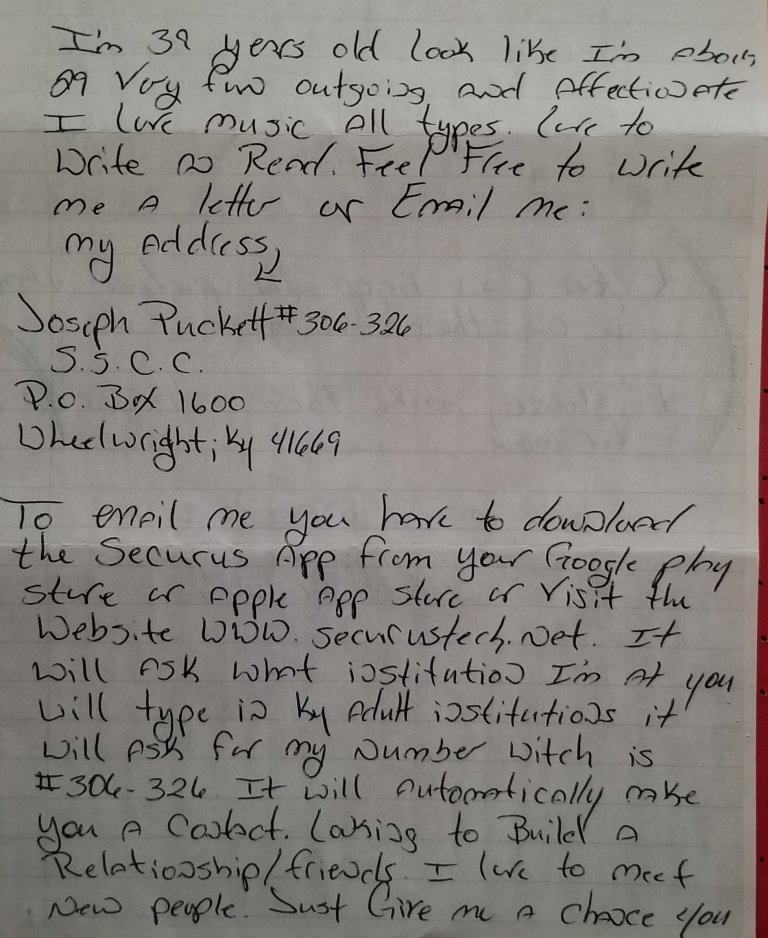 I'm 39 years old look like I'm about
29 Very fun outgoing and Affectionate
I love music All types. love to
Write no Read. Feel Free to write
me A letter or Email me:
my Address,
Joseph Puckett #306-326
S.S.C.C.
P.O. Box 1600
Wheelwright, Ky 41669
To email me you have to download
the Securus App from your Google play
store or Apple App store or Visit the
Website WWW.securustech.net. It
will Ask what institution I'm At you
will type in Ky Adult institutions it
will Ask for my Number Witch is
#306-326 It will Automatically make
you A Contact. Looking to Build A
Relationship/friends. I love to meet
New people. Just Give me A Chance you